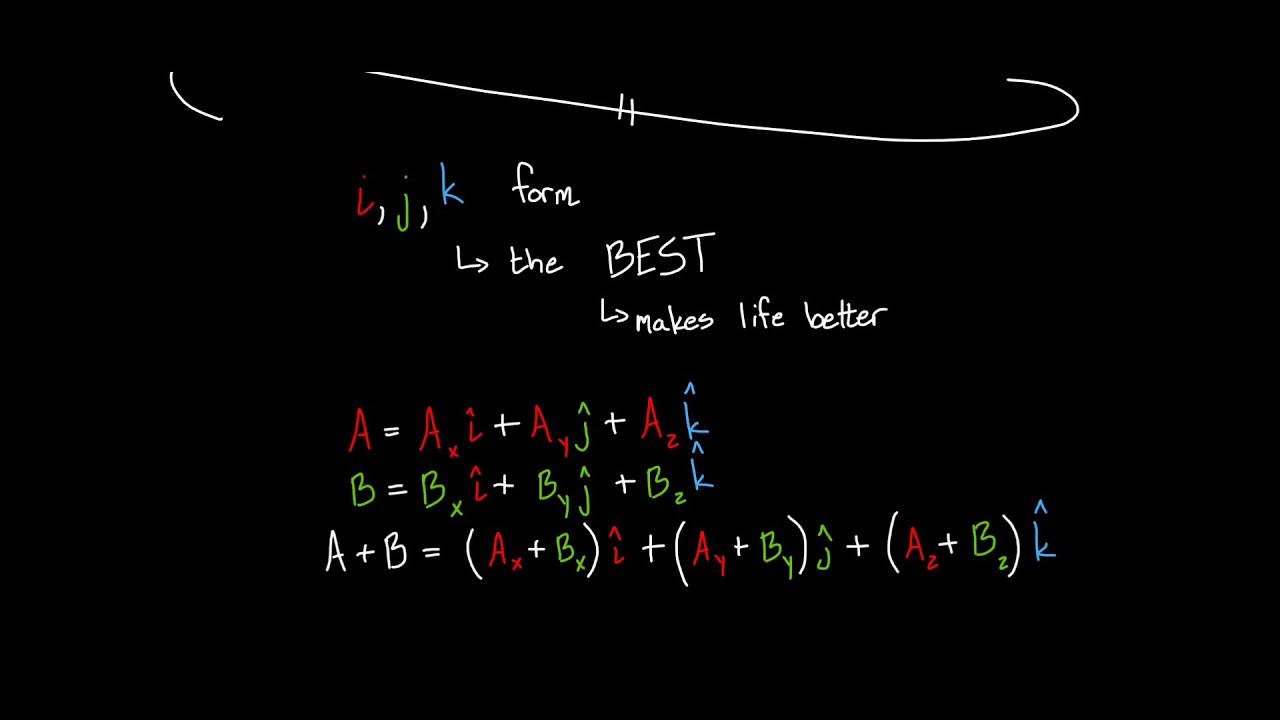 i, j, k form
↳ the BEST
↳ makes life better
A = Aₓ î + Aᵧ ĵ + A_z k̂
B = Bₓ î + Bᵧ ĵ + B_z k̂
A + B = (Aₓ + Bₓ) î + (Aᵧ + Bᵧ) ĵ + (A_z + B_z) k̂